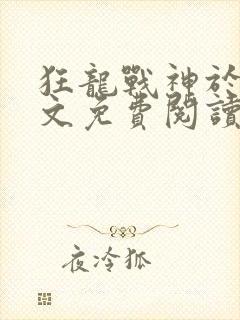 狂龍戰神於
文免費閱讀
夜冷狐